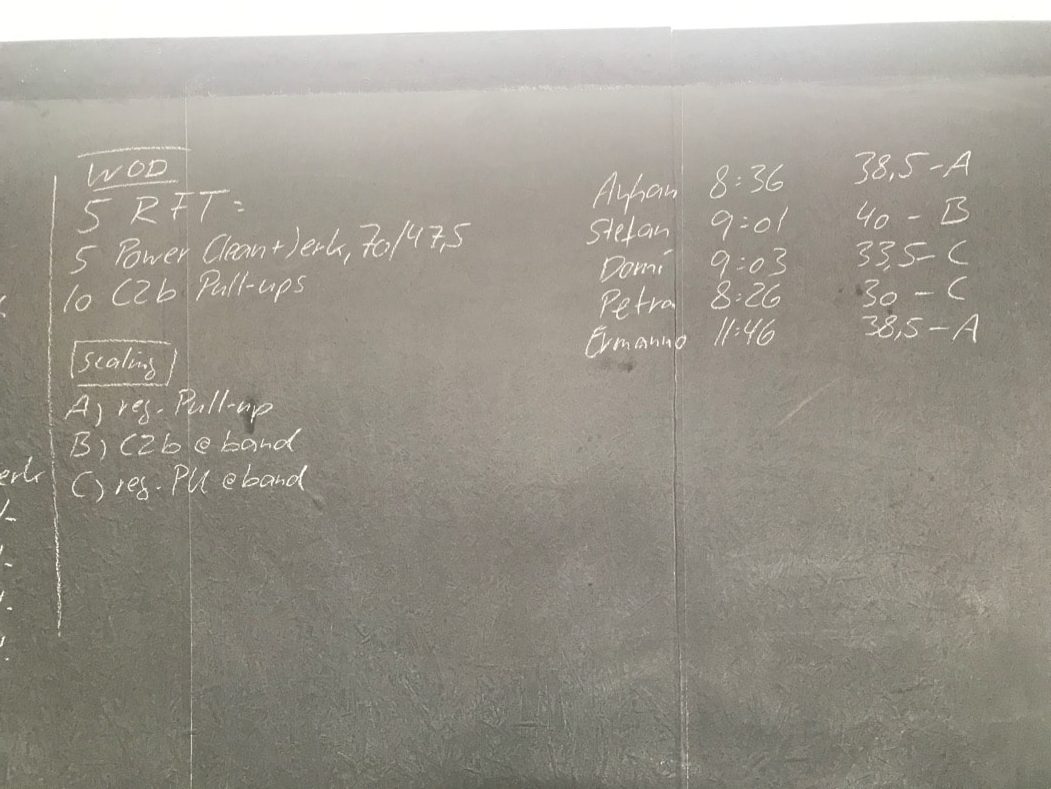 WOD
5 RFT:
5 Power Clean+Jerk, 70/47,5
10 C2b Pull-ups
Scaling
A) reg. Pull-up
B) C2b @ band
C) reg. PU @band
erk
Ayhan 8:36 38,5-A
Stefan 9:01 40-B
Domi 9:03 33,5-C
Petra 8:26 30-C
Ermanno 11:46 38,5-A